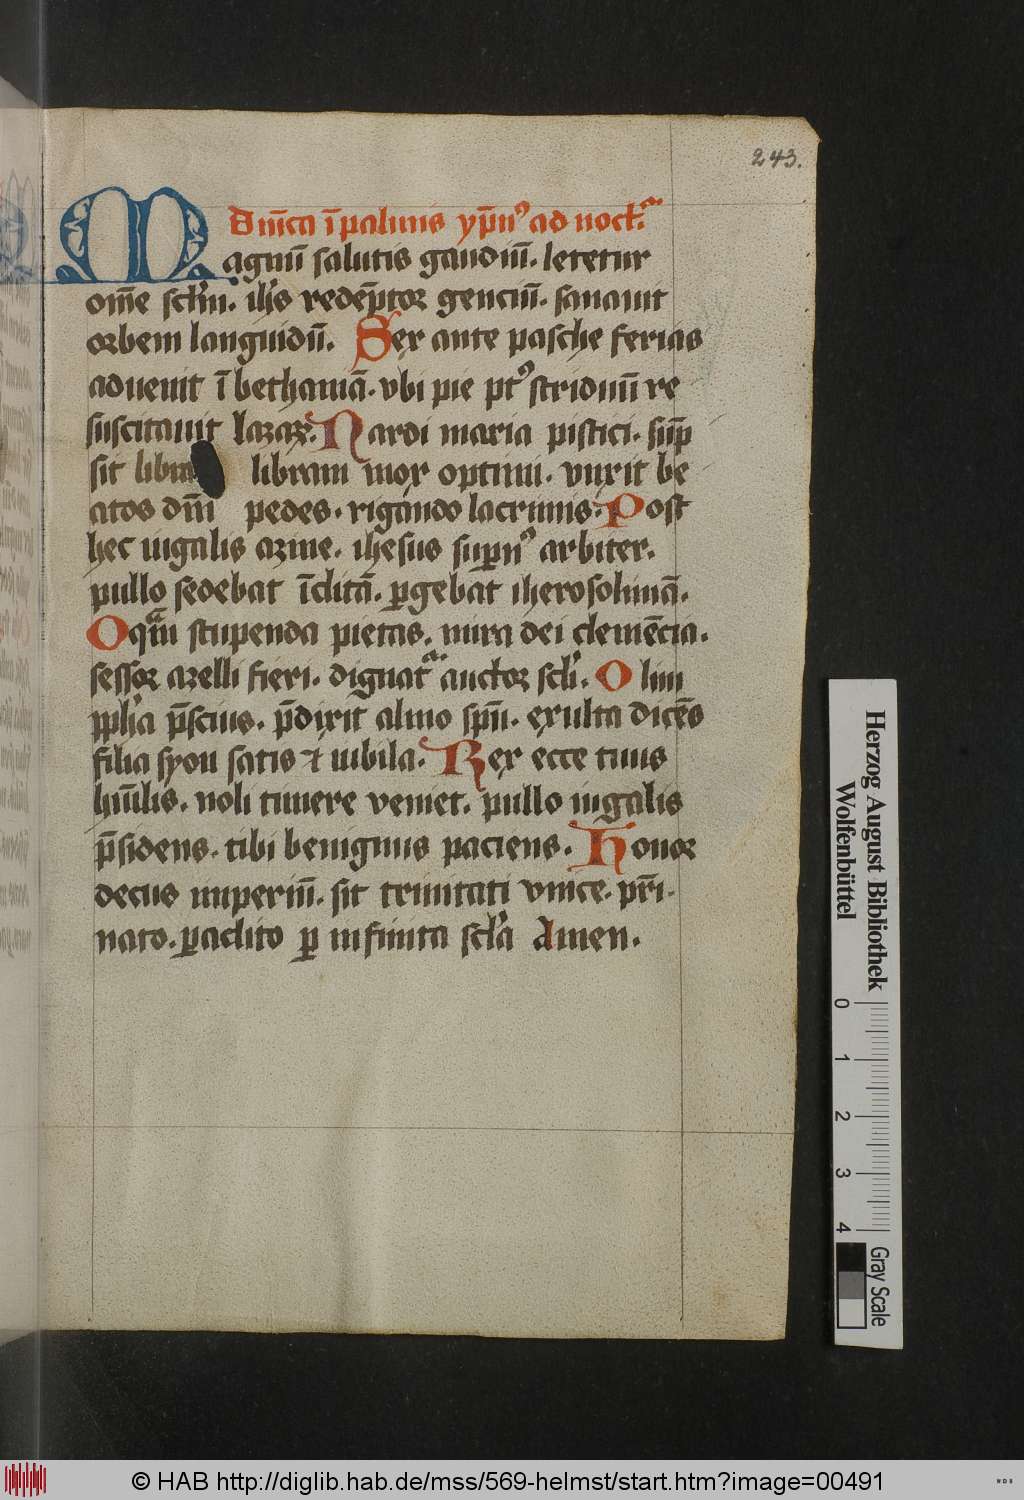 243.
Dnīca ī palmis ypn̄⁹ ad noct̄ᵃ
Magnū salutis gaudiū. letetur
om̄e sc̄lm. ihs̄ redēptor genciū. sanauit
orbem languidū. Sex ante pasche ferias
aduenit ī bethaniā. vbi pie pt⁹ triduum re
suscitauit lazaꝝ. Nardi maria pistici. sūp
sit libram libram mox optimi. vnxit be
atos dn̄i pedes. rigando lacrimis. Post
hec iugalis azine. ihesus supn̄⁹ arbiter.
pullo sedebat īclitā. ꝑgebat iherosolimā.
O qᵃm stupenda pietas. mira dei clemēcia.
sessor azelli fieri. dignatᵘʳ auctor sc̄li. Olim
ꝓph̄a p̄scius. p̄dixit almo sp̄u. exulta dicēs
filia syon satis ⁊ iubila. Rex ecce tuus
hūilis. noli timere veniet. pullo iugalis
p̄sidens. tibi benignus paciens. Honor
decus imperiū. sit trinitati vnice. pr̄i.
nato. ꝑaclito ꝑ infinita sc̄la Amen.
Herzog August Bibliothek
Wolfenbüttel
0 1 2 3 4
Gray Scale
© HAB http://diglib.hab.de/mss/569-helmst/start.htm?image=00491